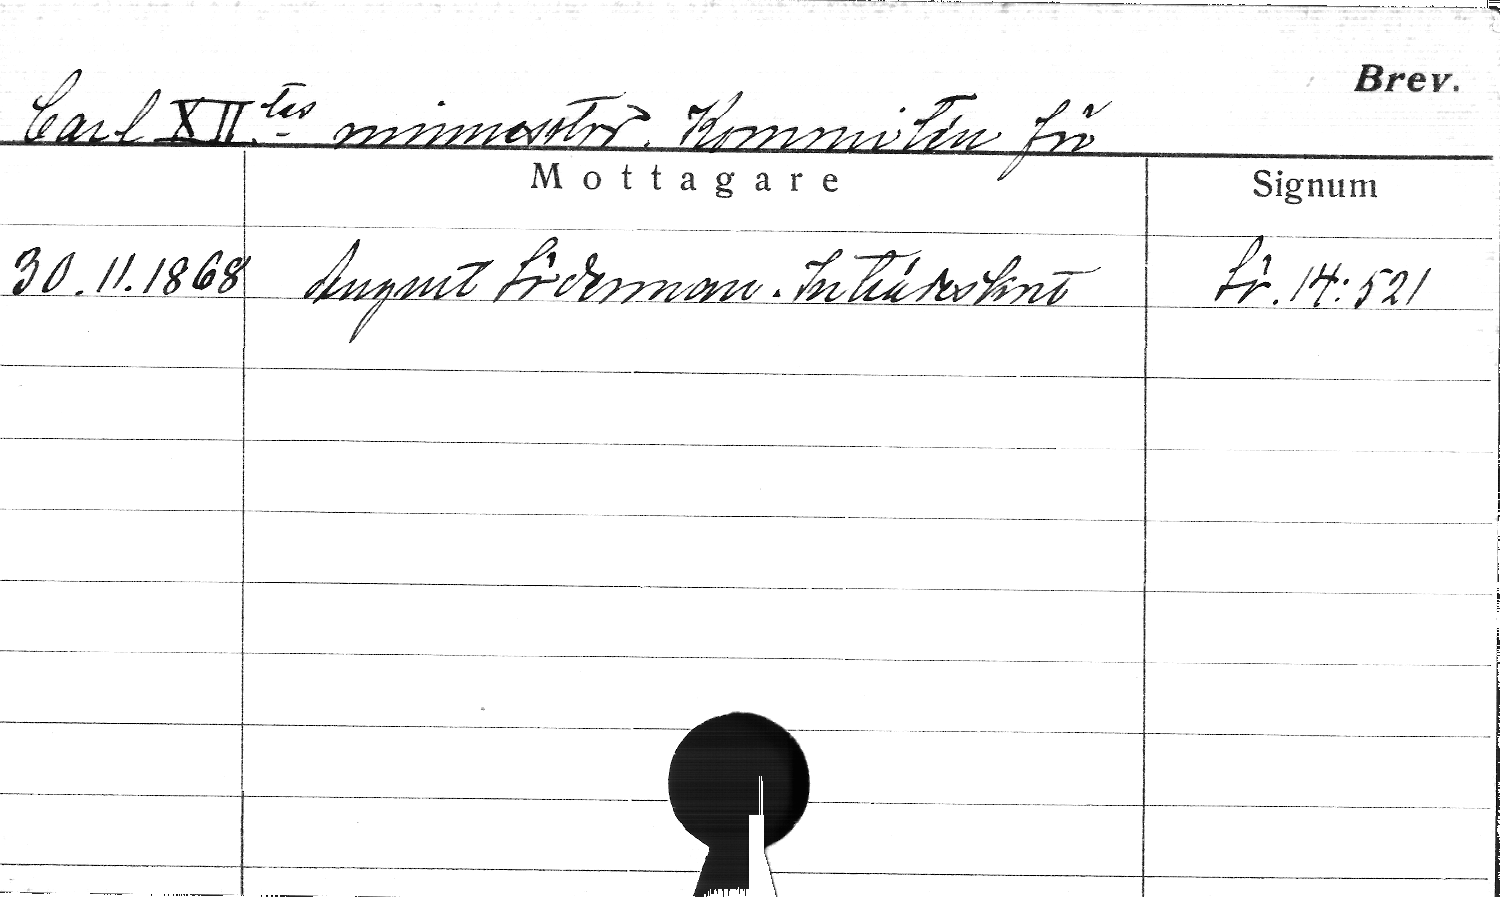 Brev.
Carl XII.tes minnesstod. Kommitén för
Mottagare Signum
30.11.1868 August Söderman. Inträdeskort Sö. 14:521